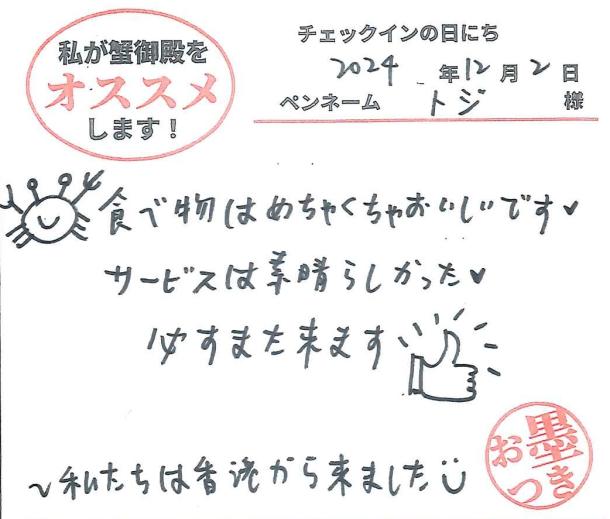 私が蟹御殿を
オススメ
します！
チェックインの日にち
2024年12月2日
ペンネーム トジ 様
食べ物はめちゃくちゃおいしいです♥
サービスは素晴らしかった♥
必すまた来ます
~私たちは香港から来ました
お墨つき